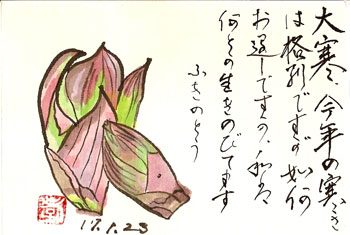 大寒 今年の寒さ
は格別ですが如何
お過しですか、私は
何とか生きのびてます
ふきのとう
17.1.23